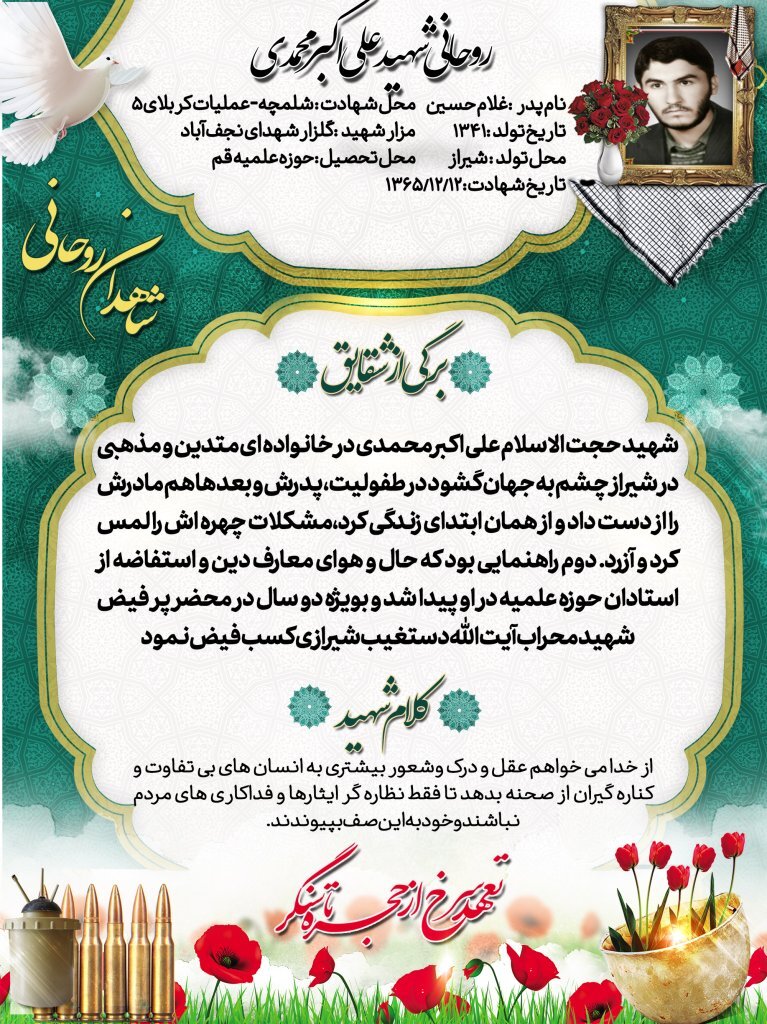 روحانی شهید علی اکبر محمدی
نام پدر :غلام حسین محل شهادت :شلمچه-عملیات کربلای ۵
تاریخ تولد :۱۳۴۱ مزار شهید :گلزار شهدای نجف آباد
محل تولد :شیراز محل تحصیل:حوزه علمیه قم
تاریخ شهادت:۱۳۶۵/۱۲/۱۲
شاهدان روحانی
برگی از شقایق
شهید حجت الاسلام علی اکبر محمدی در خانواده ای متدین و مذهبی
در شیراز چشم به جهان گشود در طفولیت، پدرش و بعدها هم مادرش
را از دست داد و از همان ابتدای زندگی کرد،مشکلات چهره اش را لمس
کرد و آزرد. دوم راهنمایی بود که حال و هوای معارف دین و استفاضه از
استادان حوزه علمیه در او پیدا شد و بویژه دو سال در محضر پر فیض
شهید محراب آیت الله دستغیب شیرازی کسب فیض نمود
کلام شهید
از خدا می خواهم عقل و درک وشعور بیشتری به انسان های بی تفاوت و
کناره گیران از صحنه بدهد تا فقط نظاره گر ایثارها و فداکاری های مردم
نباشند و خود به این صف بپیوندند.
تعهد سرخ از حجره تا سنگر